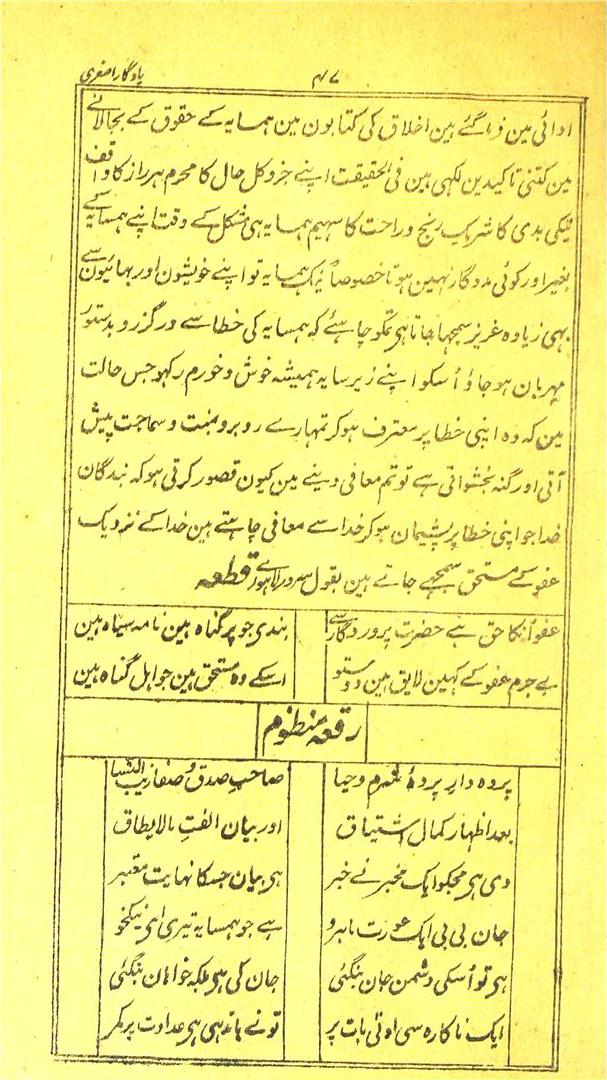 یادگار اصغری
۴۷
ادائی مین فرما گئے ہین اخلاق کی کتابون مین ہمسایہ کے حقوق کے بجالانے
مین کتنی تاکیدین لکہی ہین فی الحقیقت اپنے جزو کل حال کا محرم ہر راز کا واقف
نیکی بدی کا شریک رنج و راحت کا سہیم ہمسایہ ہی مشکل کے وقت اپنے ہمسایہ کے
بغیر اور کوئی مددگار نہین ہوتا خصوصاً نیک ہمسایہ تو اپنے خویشون اور بہائیون سے
بہی زیادہ عزیز سمجہا جاتا ہی تمکو چاہئے کہ ہمسایہ کی خطا سے درگزرو بدستور
مہربان ہوجاؤ اُسکو اپنے زیر سایہ ہمیشہ خوش و خورم رکہو جس حالت
مین کہ وہ اپنی خطا پر معترف ہوکر تمہارے روبرو بمنت و سماجت پیش
آتی اور گنہ بخشواتی ہے تو تم معافی دینے مین کیون قصور کرتی ہو کہ بندگان
خدا جو اپنی خطا پر پشیمان ہوکر خدا سے معافی چاہتے ہین خدا کے نزدیک
عفو کے مستحق سمجہے جاتے ہین بقول سرور لاہوری قطعہ
عفو اُنکا حق ہے حضرت پروردگار سے بندی جو پر گناہ ہین نامہ سیاہ ہین
بے جرم عفو کے کہین لایق ہین دوستو اسکے وہ مستحق ہین جو اہل گناہ ہین
رقعہ منظوم
پردہ دارِ پردۂ شرم و حیا صاحبِ صدق و صفا زیب النسا
بعد اظہار کمال اشتیاق اور بیان الفتِ بالایطاق
دی ہی مجکو ایک مخبر نے خبر ہی بیان جسکا نہایت معتبر
جان بی بی ایک عورت ماہرو ہے جو ہمسایہ تیری ای نیکخو
ہی تو اُسکی دشمن جان بنگئی جان کی ہی بلکہ خواہان بنگئی
ایک ناکارہ سی اوتی بات پر تونے باندہی ہی عداوت پر کمر